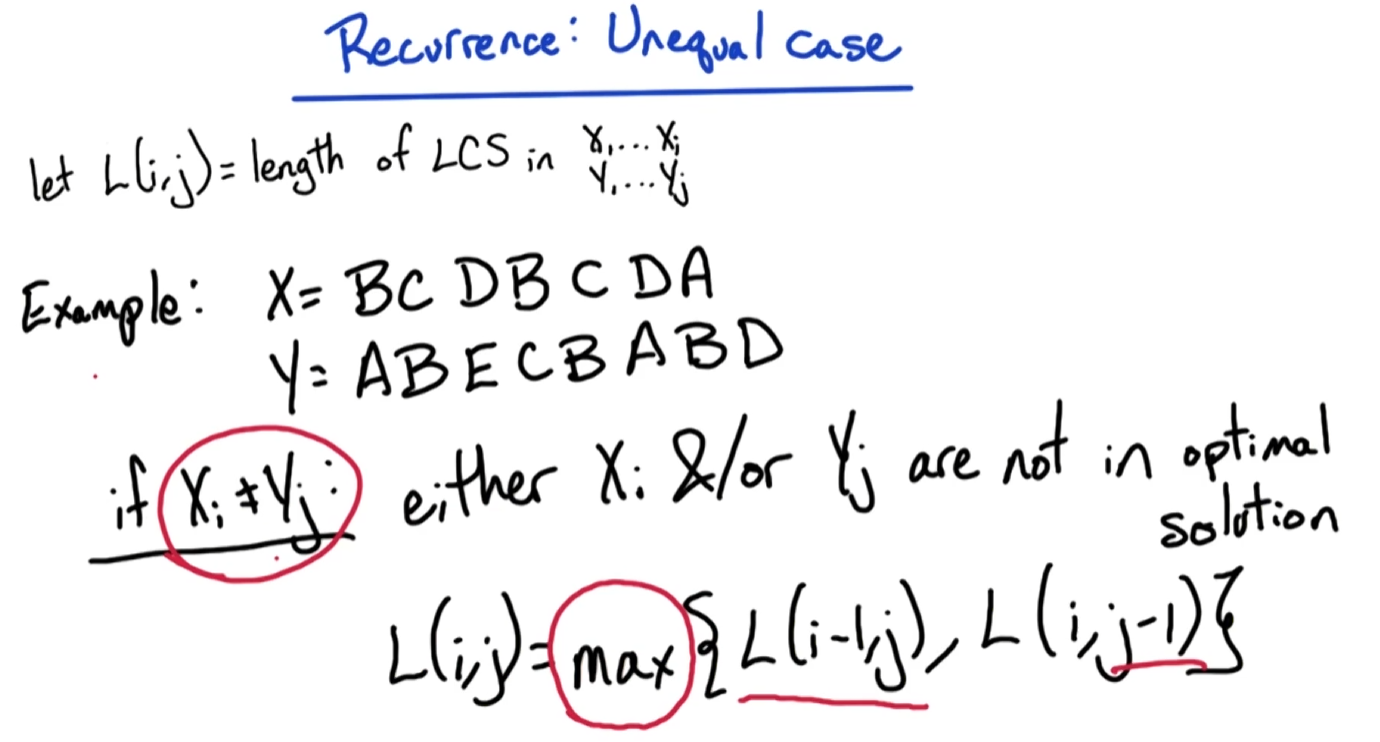 Recurrence: Unequal case
let L(i,j) = length of LCS in X₁...Xᵢ
Y₁...Yⱼ
Example: X = BCDBCDA
Y = ABECBABD
if Xᵢ ≠ Yⱼ: either Xᵢ &/or Yⱼ are not in optimal
solution
L(i,j) = max{L(i-1,j), L(i,j-1)}